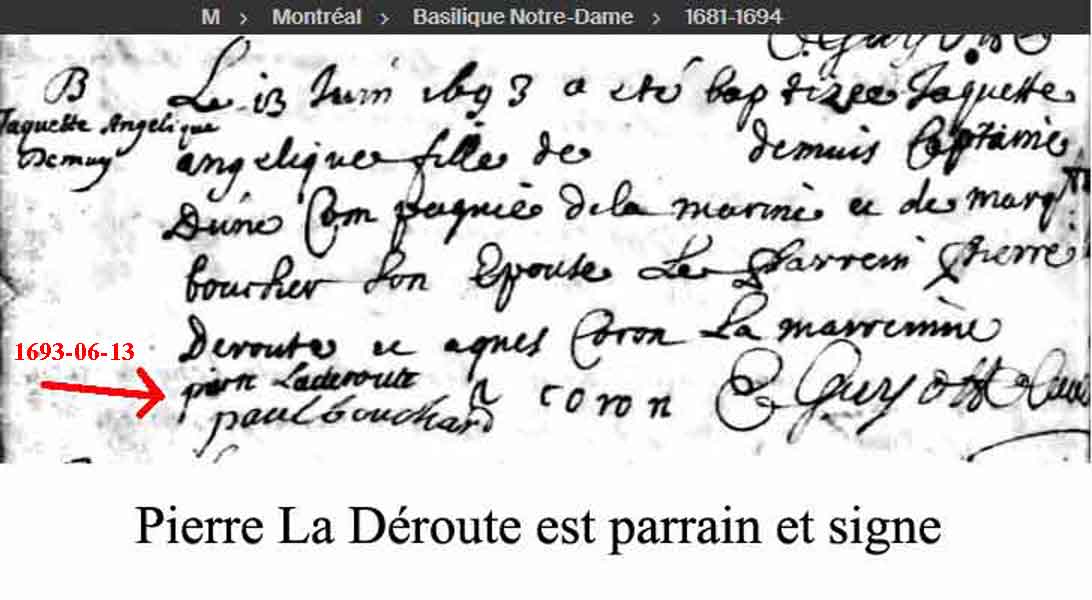 M > Montréal > Basilique Notre-Dame > 1681-1694
B
Jaquette Angelique
Demuy
Le 13 Juin 1693 a eté baptizee Jaquette
angelique fille de demuis Capitaine
Dune Compagnie de la marine et de marg
boucher son Epouse Le Parrein Pierre
Deroute et agnes Coron La marreinne
1693-06-13
pierre Laderoute A coron E Guyotte
paul bouchard
Pierre La Déroute est parrain et signe